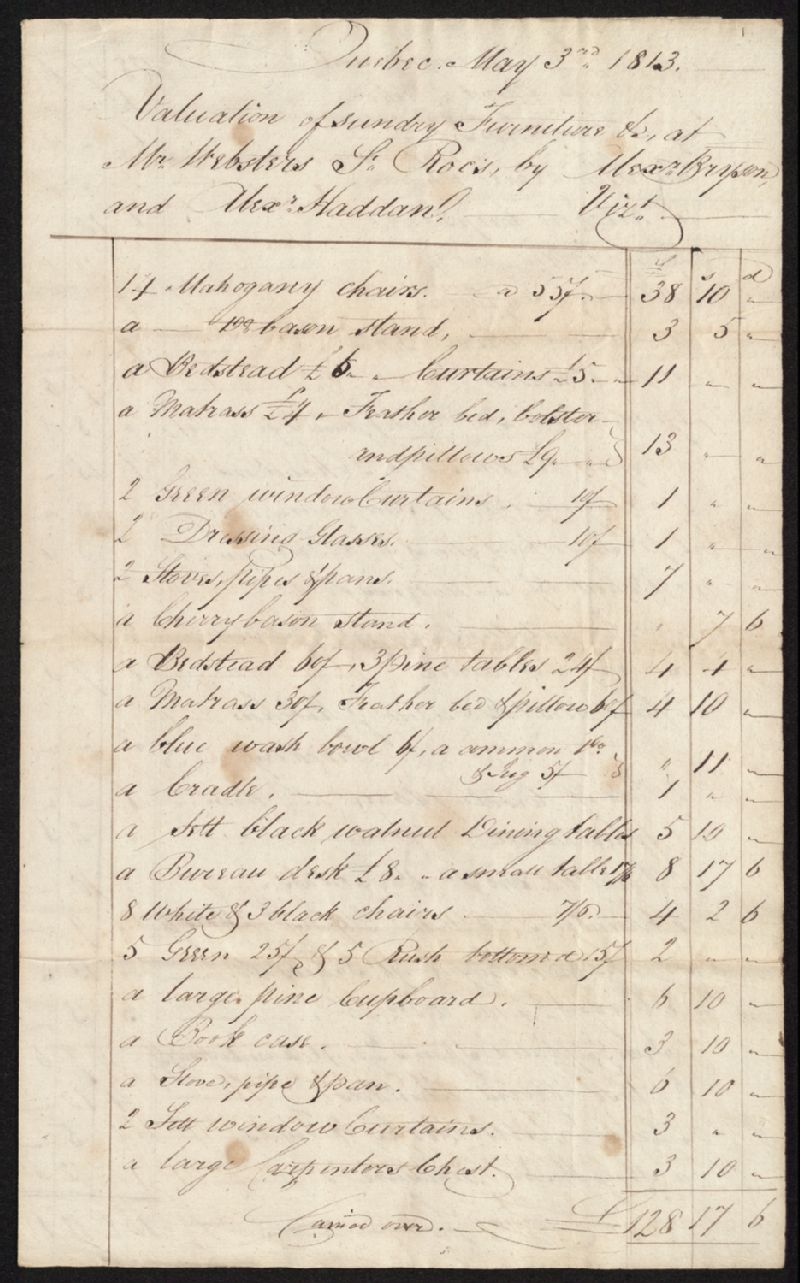 Quebec. May 3rd 1813.
Valuation of sundry Furniture &c, at
Mr. Websters St. Roc's, by Alexr. Bryson,
and Alexr. Haddan, Vizt.
£ s d
14 Mahogany chairs. a 55/. 38 10 "
a — do bason stand, 3 5 "
a Bedstead £6. " Curtains £5. " 11 " "
a Matrass £4, Feather bed, bolster
and pillows £9. " 13 " "
2 Green window Curtains. 10/ 1 " "
2 Dressing Glasses. 10/ 1 " "
2 Stoves, pipes & pans. 7 " "
a Cherry bason stand. " 7 6
a Bedstead 60/, 3 pine tables 24/ 4 4 "
a Matrass 30/, Feather bed & pillow 60/ 4 10 "
a blue wash bowl 6/, a common do
& Jug 5/ " 11 "
a Cradle. 1 " "
a Sett black walnut Dining tables 5 10 "
a Bureau desk £8. " a small table 17/6 8 17 6
8 White & 3 black chairs 7/6. 4 2 6
5 Green 25/ & 5 Rush bottom'd 15/ 2 " "
a large pine Cupboard. 6 10 "
a Book case. 3 10 "
a Stove, pipe & pan. 6 10 "
2 Sett window Curtains. 3 " "
a large Carpenters Chest. 3 10 "
Carried over. £128 17 6